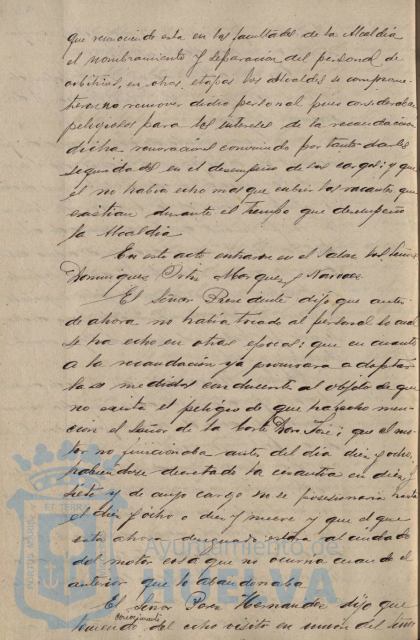 que reconociendo esta en las facultades de la Alcaldia
el nombramiento y separacion del personal de
arbitrios, en otras etapas los Alcaldes se comprome-
tieron no remover dicho personal pues consideraban
peligrosos para los intereses de la recaudacion
dichas renovaciones conviniendo por tanto darles
seguridades en el desempeño de los cargos; y que
el no habia echo mas que cubrir las vacantes que
existian durante el tiempo que desempeño
la Alcaldia
En este acto entraron en el Salon los Señores
Dominguez Ortiz Marquez y Narvaez
El Señor Presidente dijo que antes
de ahora no habia tocado al personal lo cual
se ha echo en otras epocas; que en cuanto
a la recaudacion ya procurara adoptar
las medidas conducentes al objeto de que
no exista el peligro de que ha hecho men-
cion el Señor de la Corte Don José; que el mo-
tor no funcionaba antes del dia diez y ocho,
habiendose decretado la cesantia en diez y
siete y de cuyo cargo no se posesionaria hasta
el diez y ocho o diez y nueve y que el que
esta ahora designado estara al cuidado
del motor cosa que no ocurria cuando el
anterior que lo abandonaba
El Señor Perez Hernandez dijo que
conocimiento
teniendo del echo visitó en union del
Ayuntamiento de
HUELVA